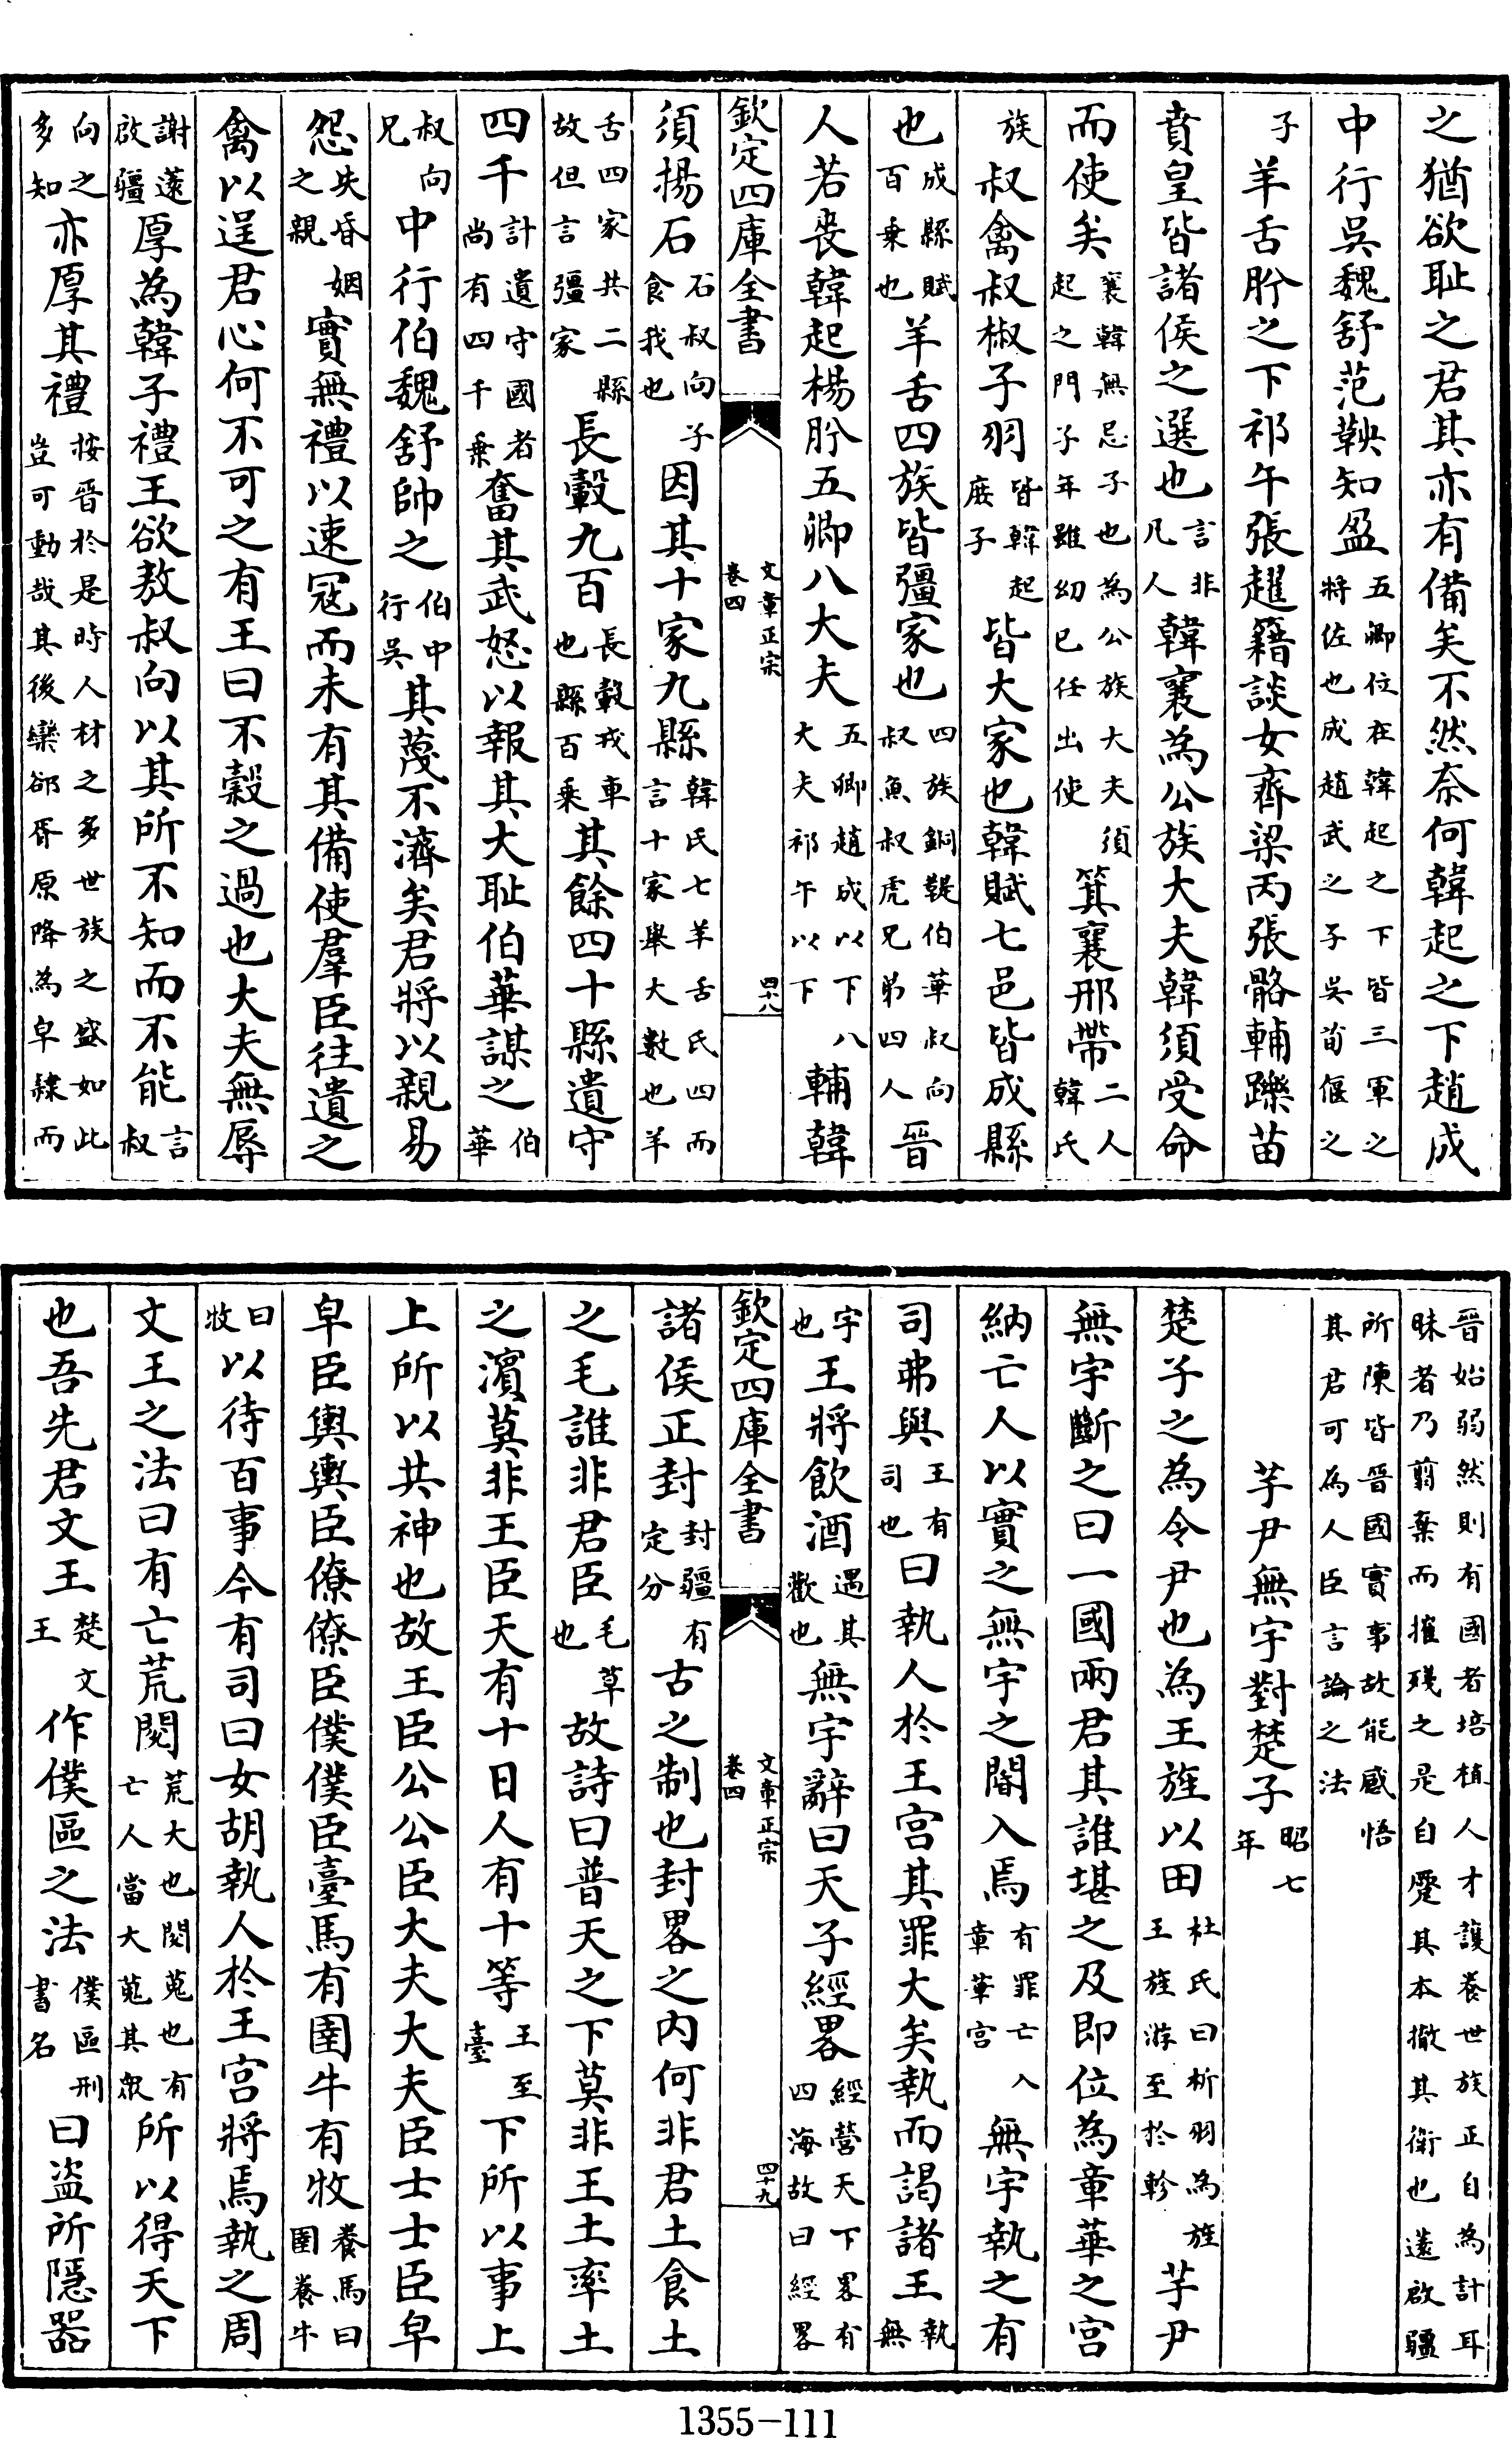 之猶欲耻之君其亦有備矣不然奈何韓起之下趙成
中行吳魏舒范鞅知盈五卿位在韓起之下皆三軍之將佐也成趙武之子吳荀偃之
子羊舌肸之下祁午張趯籍談女齊梁丙張骼輔躒苗
賁皇皆諸侯之選也言非凡人韓襄為公族大夫韓須受命
而使矣襄韓無忌子也為公族大夫須起之門子年雖幼已任出使箕襄邢帶二人韓氏
族叔禽叔椒子羽皆韓起庶子皆大家也韓賦七邑皆成縣
也成縣賦百乗也羊舌四族皆彊家也四族銅鞮伯華叔向叔魚叔虎兄弟四人晉
人若喪韓起楊肸五卿八大夫五卿趙成以下八大夫祁午以下輔韓
欽定四庫全書 文章正宗 卷四 四十八
須揚石石叔向子食我也因其十家九縣韓氏七羊舌氏四而言十家舉大數也羊
舌四家共二縣故但言彊家長轂九百長轂戎車也縣百乗其餘四十縣遺守
四千計遺守國者尚有四千乗奮其武怒以報其大耻伯華謀之伯華
叔向兄中行伯魏舒帥之伯中行吳其蔑不濟矣君將以親易
怨失婚姻之親實無禮以速冦而未有其備使羣臣往遺之
禽以逞君心何不可之有王曰不穀之過也大夫無辱
謝薳啟疆厚為韓子禮王欲敖叔向以其所不知而不能言叔
向之多知亦厚其禮按晉於是時人材之多世族之盛如此豈可動哉其後欒郤胥原降為皁隸而
晉始弱然則有國者培植人才護養世族正自為計耳昧者乃翦棄而摧殘之是自蹙其本撤其衛也薳啟疆
所陳皆晉國實事故能感悟其君可為人臣言論之法
芋尹無宇對楚子昭七年
楚子之為令尹也為王旌以田杜氏曰析羽為旌王旌游至於軫芋尹
無宇斷之曰一國兩君其誰堪之及即位為章華之宮
納亡人以實之無宇之閽入焉有罪亡入章華宮無宇執之有
司弗與王有司也曰執人於王宮其罪大矣執而謁諸王執無
宇也王將飲酒遇其歡也無宇辭曰天子經畧經營天下畧有四海故曰經畧
欽定四庫全書 文章正宗 卷四 四十九
諸侯正封封疆有定分古之制也封畧之内何非君土食土
之毛誰非君臣毛草也故詩曰普天之下莫非王土率土
之濱莫非王臣天有十日人有十等王至臺下所以事上
上所以共神也故王臣公公臣大夫大夫臣士士臣皁
皁臣輿輿臣僚僚臣僕僕臣臺馬有圉牛有牧養馬曰圉養牛
曰牧以待百事今有司曰女胡執人於王宮將焉執之周
文王之法曰有亡荒閱荒大也閱蒐也有亡人當大蒐其衆所以得天下
也吾先君文王楚文王作僕區之法僕區刑書名曰盜所隱器
1355-111